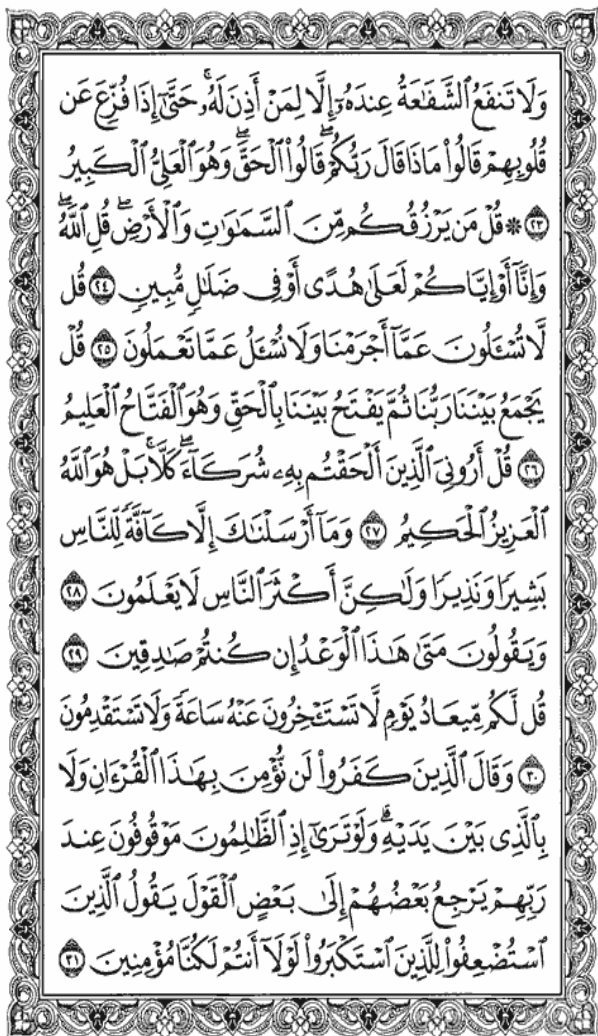 وَلَا تَنفَعُ ٱلشَّفَٰعَةُ عِندَهُۥٓ إِلَّا لِمَنْ أَذِنَ لَهُۥۚ حَتَّىٰٓ إِذَا فُزِّعَ عَن
قُلُوبِهِمْ قَالُوا۟ مَاذَا قَالَ رَبُّكُمْۖ قَالُوا۟ ٱلْحَقَّۖ وَهُوَ ٱلْعَلِىُّ ٱلْكَبِيرُ
٢٣ ۞ قُلْ مَن يَرْزُقُكُم مِّنَ ٱلسَّمَٰوَٰتِ وَٱلْأَرْضِۖ قُلِ ٱللَّهُۖ
وَإِنَّآ أَوْ إِيَّاكُمْ لَعَلَىٰ هُدًى أَوْ فِى ضَلَٰلٍ مُّبِينٍ ٢٤ قُل
لَّا تُسْـَٔلُونَ عَمَّآ أَجْرَمْنَا وَلَا نُسْـَٔلُ عَمَّا تَعْمَلُونَ ٢٥ قُلْ
يَجْمَعُ بَيْنَنَا رَبُّنَا ثُمَّ يَفْتَحُ بَيْنَنَا بِٱلْحَقِّ وَهُوَ ٱلْفَتَّاحُ ٱلْعَلِيمُ
٢٦ قُلْ أَرُونِىَ ٱلَّذِينَ أَلْحَقْتُم بِهِۦ شُرَكَآءَۖ كَلَّاۚ بَلْ هُوَ ٱللَّهُ
ٱلْعَزِيزُ ٱلْحَكِيمُ ٢٧ وَمَآ أَرْسَلْنَٰكَ إِلَّا كَآفَّةً لِّلنَّاسِ
بَشِيرًا وَنَذِيرًا وَلَٰكِنَّ أَكْثَرَ ٱلنَّاسِ لَا يَعْلَمُونَ ٢٨
وَيَقُولُونَ مَتَىٰ هَٰذَا ٱلْوَعْدُ إِن كُنتُمْ صَٰدِقِينَ ٢٩
قُل لَّكُم مِّيعَادُ يَوْمٍ لَّا تَسْتَـْٔخِرُونَ عَنْهُ سَاعَةً وَلَا تَسْتَقْدِمُونَ
٣٠ وَقَالَ ٱلَّذِينَ كَفَرُوا۟ لَن نُّؤْمِنَ بِهَٰذَا ٱلْقُرْءَانِ وَلَا
بِٱلَّذِى بَيْنَ يَدَيْهِۗ وَلَوْ تَرَىٰٓ إِذِ ٱلظَّٰلِمُونَ مَوْقُوفُونَ عِندَ
رَبِّهِمْ يَرْجِعُ بَعْضُهُمْ إِلَىٰ بَعْضٍ ٱلْقَوْلَ يَقُولُ ٱلَّذِينَ
ٱسْتُضْعِفُوا۟ لِلَّذِينَ ٱسْتَكْبَرُوا۟ لَوْلَآ أَنتُمْ لَكُنَّا مُؤْمِنِينَ ٣١